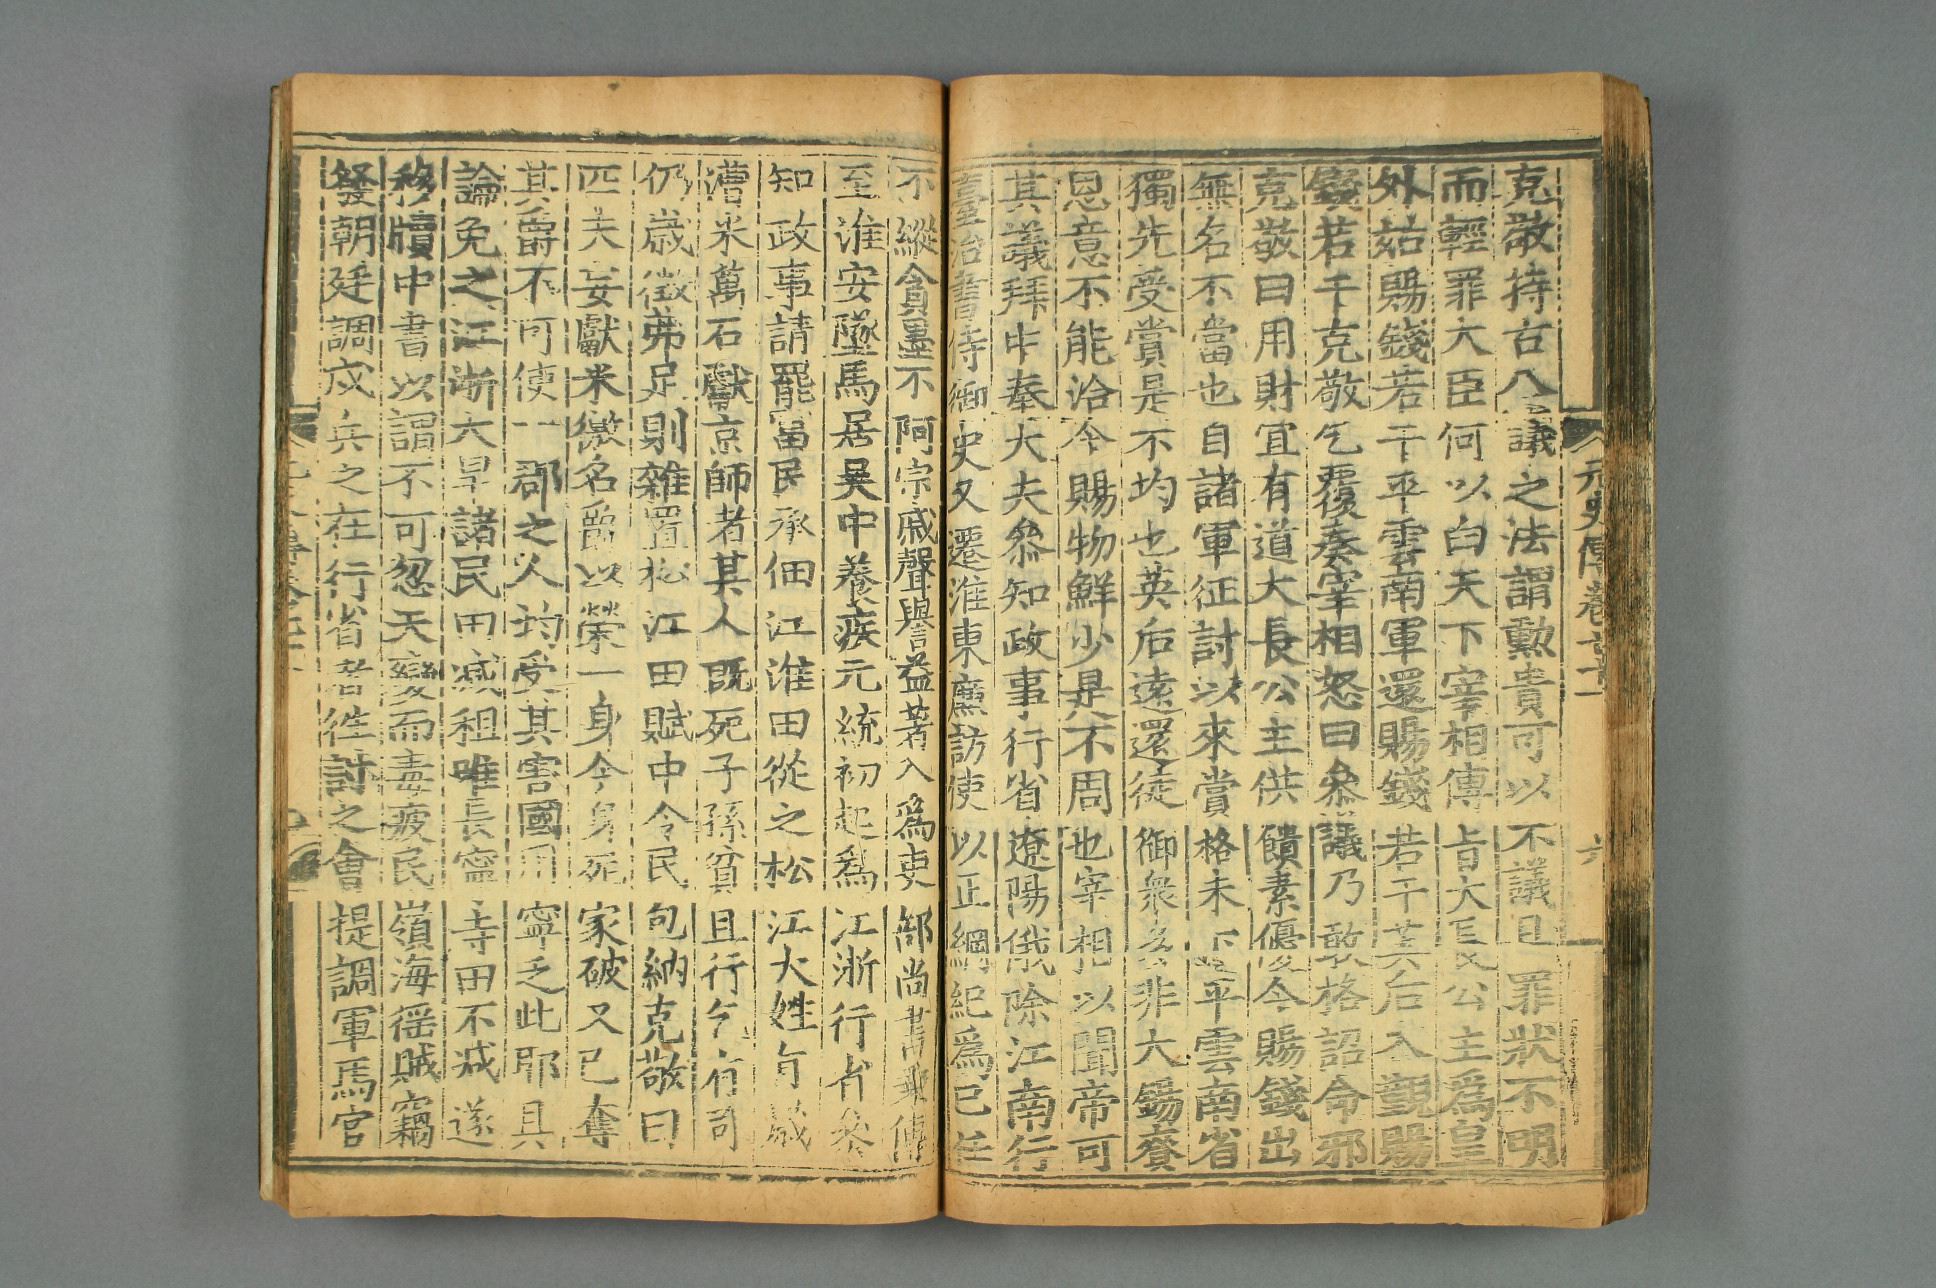 元史傳卷七十一
六
克敬持古八議之法謂勲貴可以不議且罪狀不明
而輕罪大臣何以白天下宰相傳旨大長公主爲皇
外姑賜錢若干平雲南軍還賜錢若干英后入覲賜
錢若干克敬乞覆奏宰相怒曰叅議乃敢格詔命邪
克敬曰用財宜有道大長公主供饋素優今賜錢出
無名不當也自諸軍征討以來賞格未下平雲南省
獨先受賞是不均也英后遠還徒御衆多非大錫賚
恩意不能洽今賜物鮮少是不周也宰相以聞帝可
其議拜中奉大夫叅知政事行省遼陽俄除江南行
臺治書侍御史又遷淮東廉訪使以正綱紀爲己任
不縱貪墨不阿宗戚聲譽益著入爲吏部尚書乘傳
至淮安墜馬居吳中養疾元統初起爲江浙行省叅
知政事請罷富民承佃江淮田從之松江大姓有歲
漕米萬石獻京師者其人既死子孫貧且行乞有司
仍歲徵弗足則雜置松江田賦中令民包納克敬曰
匹夫妄獻米徼名爵以榮一身今身死家破又已奪
其爵不可使一郡之人均受其害國用寧乏此耶具
論免之江浙大旱諸民田减租唯長寧寺田不减遂
移牘中書以謂不可忽天變而毒疲民嶺海猺賊竊
發朝廷調戍兵之在行省者徃討之會提調軍馬官